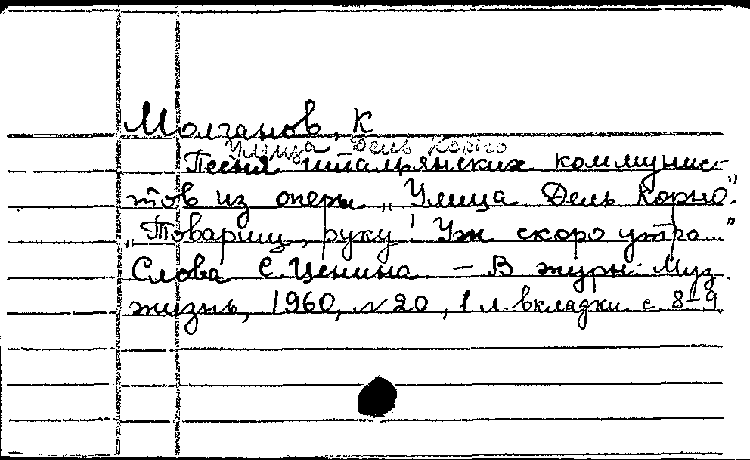 Молчанов, К
Улица Дель Корно
Песня итальянских коммунис-
тов из оперы „Улица Дель Корно".
„Товарищ, руку! Уж скоро утро..."
Слова С. Ценина — В журн. Муз.
жизнь, 1960, №20, 1 л. вкладки с. 8-9